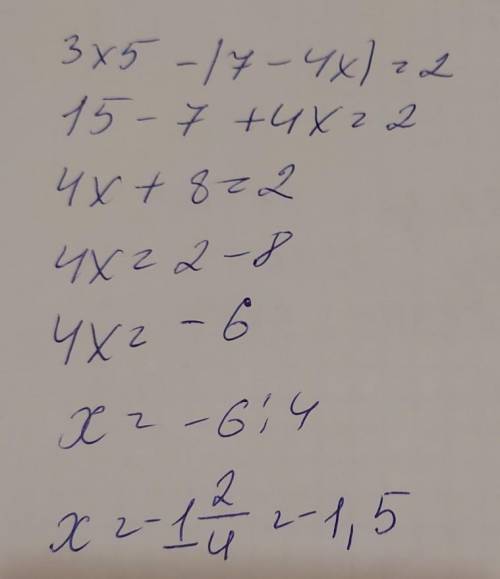 3x5 -(7 - 4x) = 2
15 - 7 + 4x = 2
4x + 8 = 2
4x = 2 - 8
4x = - 6
x = - 6 : 4
x = -1 2/4 = -1,5